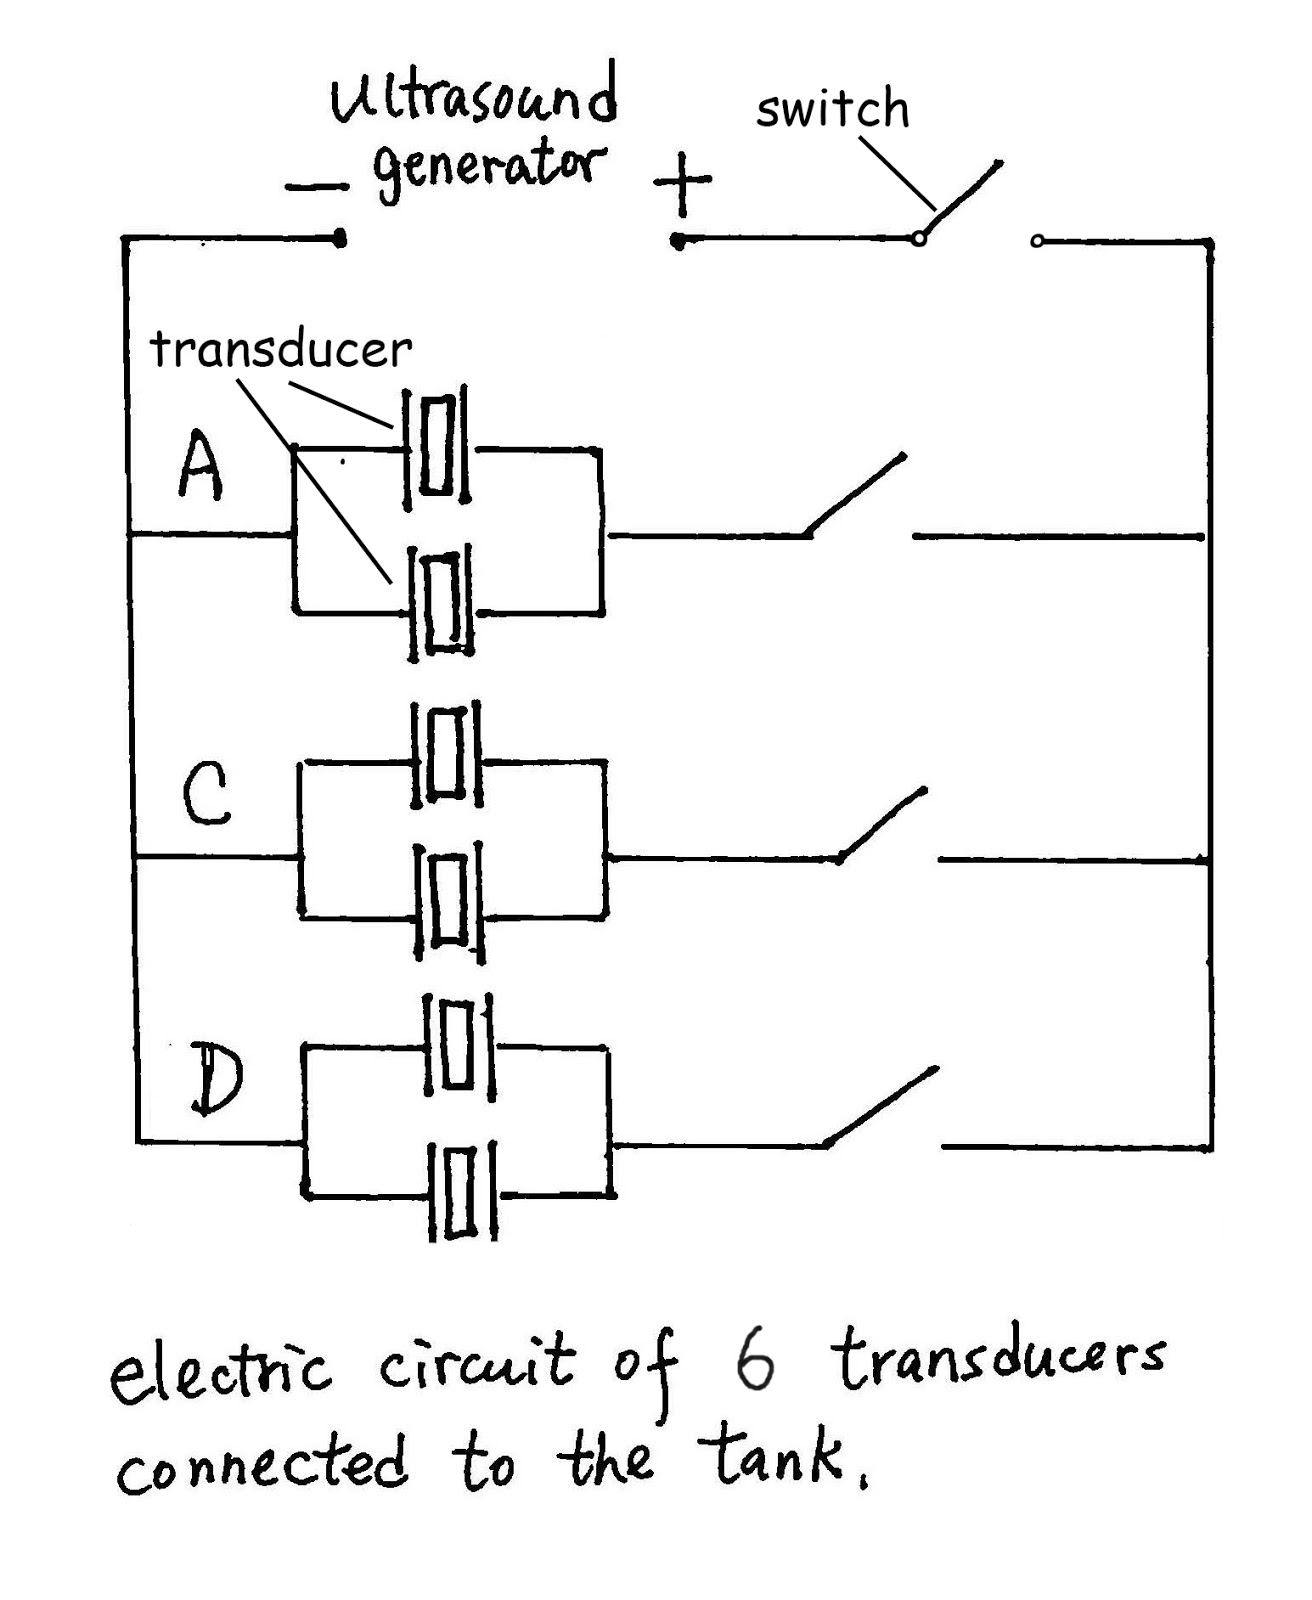 Ultrasound
generator
switch
− +
transducer
A
C
D
electric circuit of 6 transducers
connected to the tank.